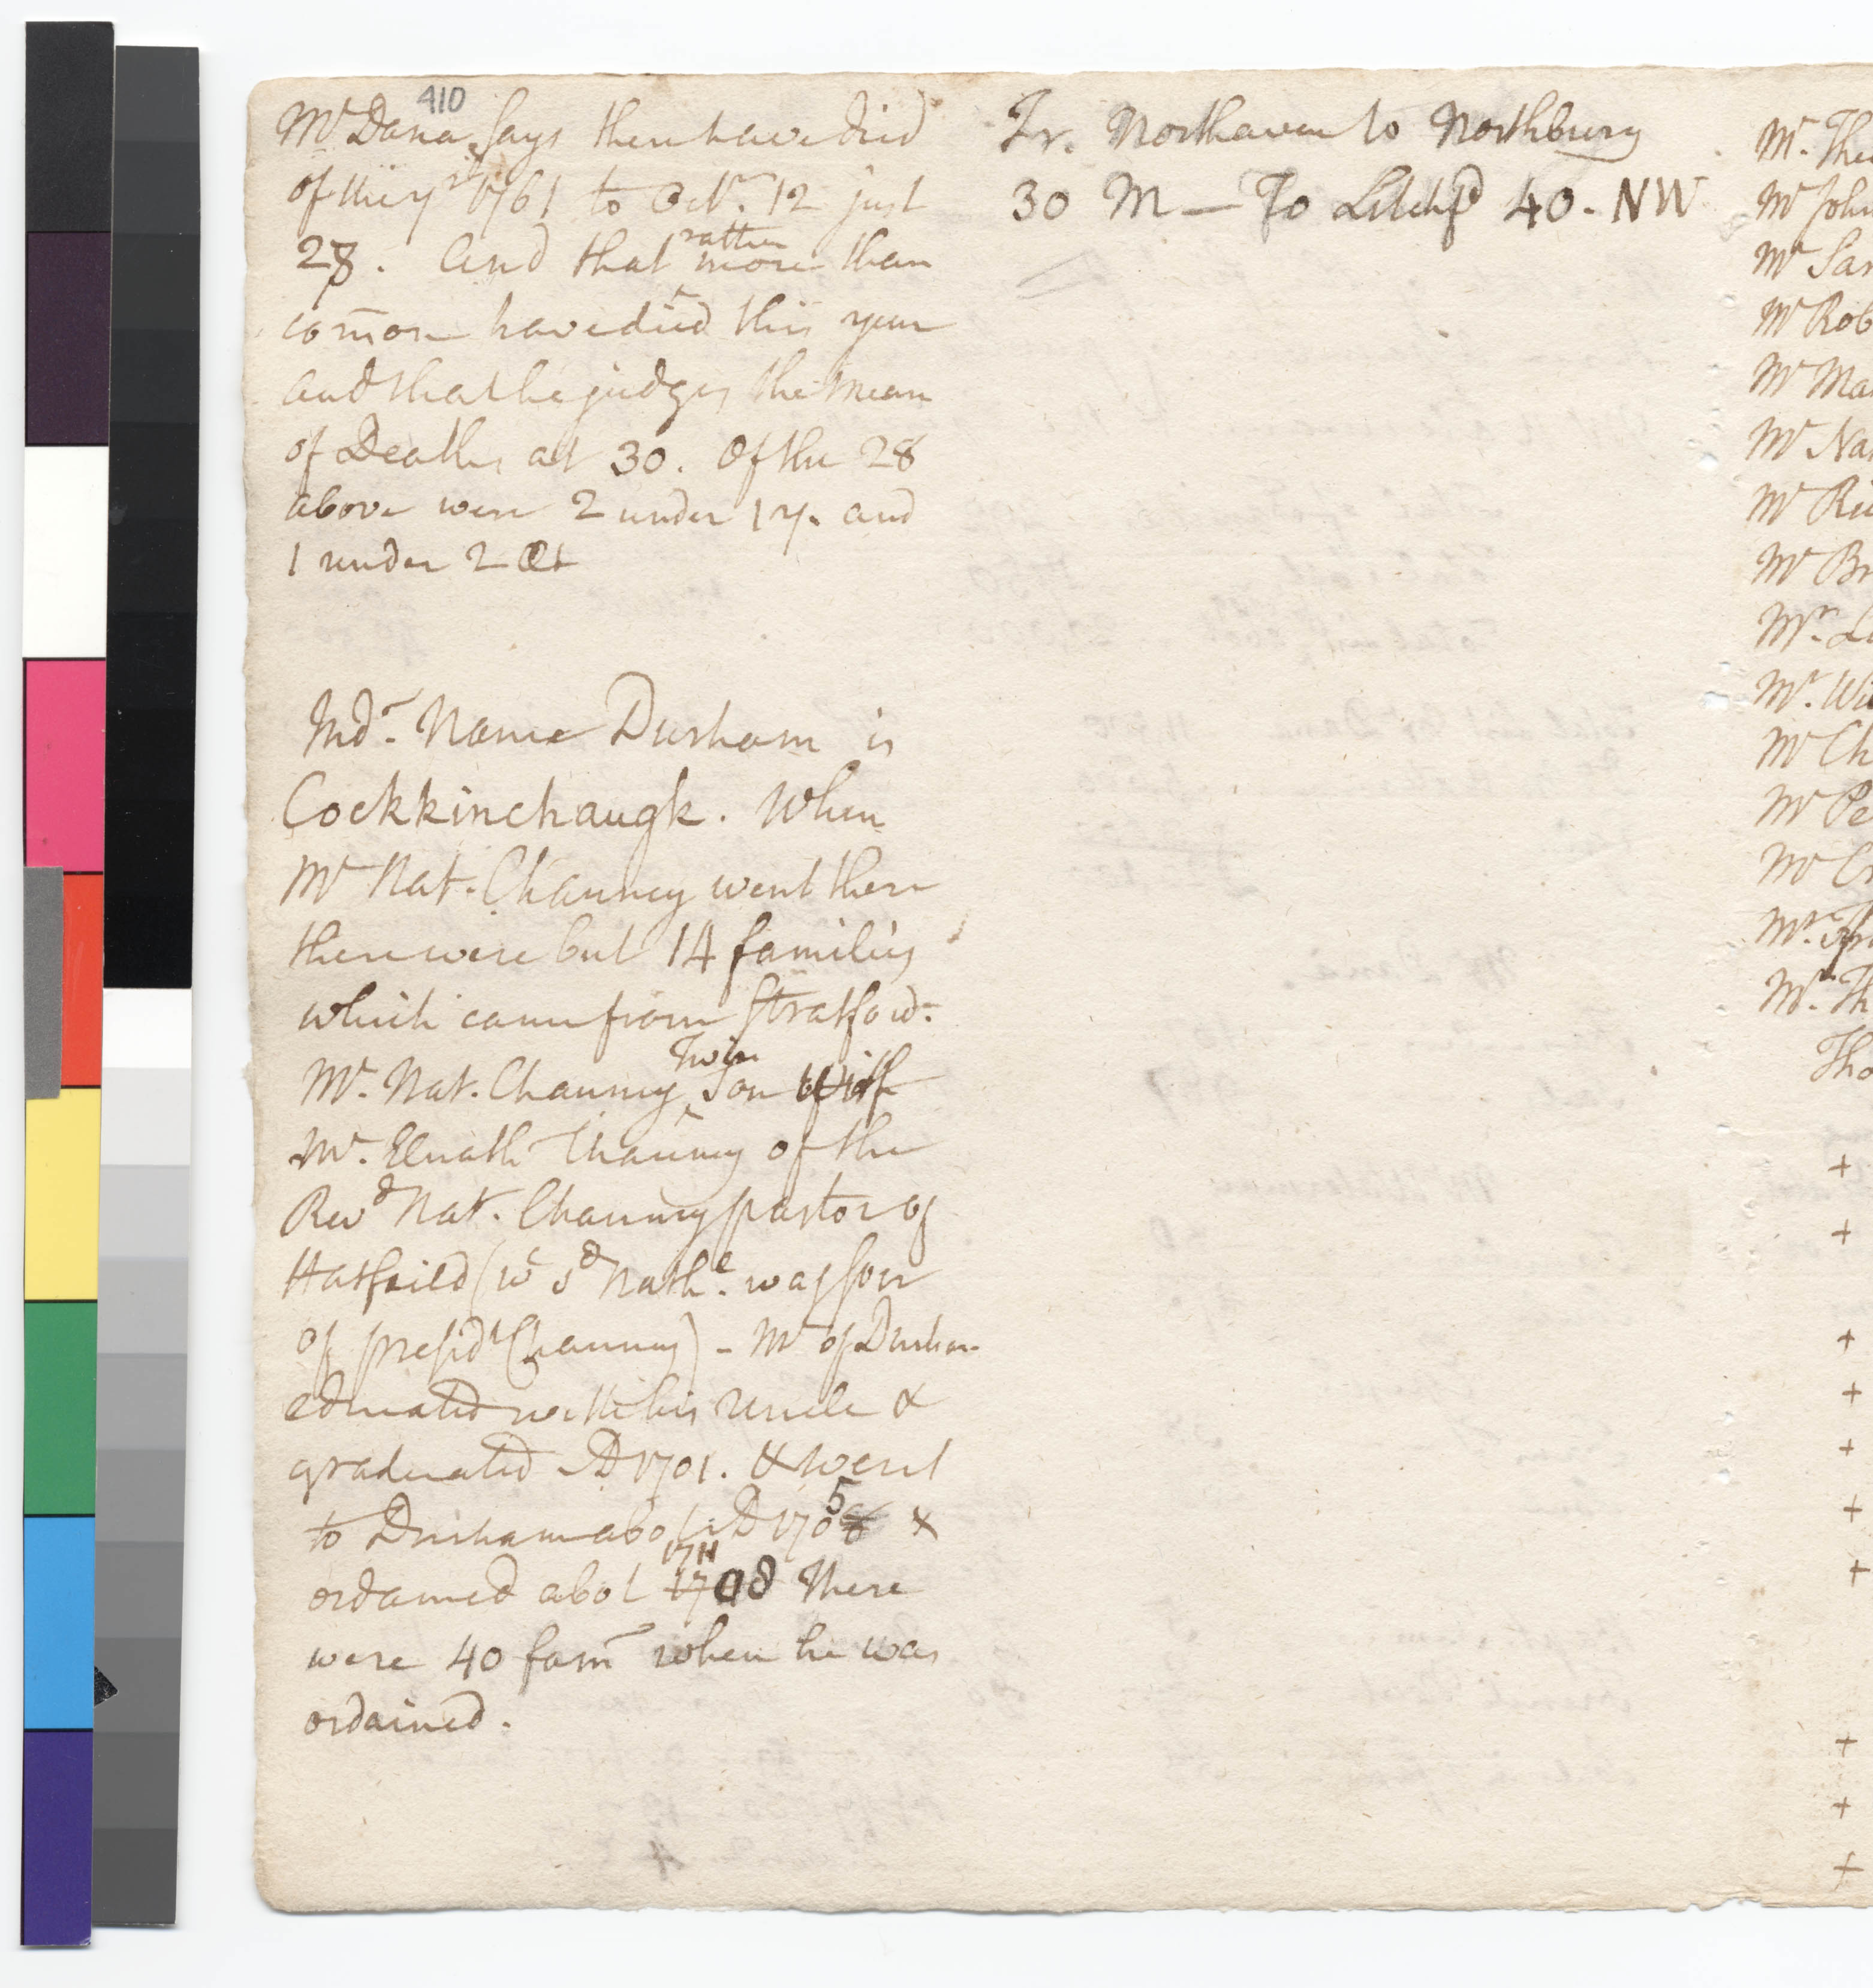 410
Mr Dana says there have died
of this yr 1761 to Octr. 12 just
28. And that rather more than
com̄on have died this year
and that he judges the mean
of Deaths at 30. Of the 28
above were 2 under 1 y. and
1 under 2 Æt
Indn. Name Durham is
Cockkinchaugk. When
Mr Nat. Chauncy went there
there were but 14 families
which came from Stratford.
Mr. Nat. Chauncy Twin Son
Mr. Elnath Chauncy of the
Revd Nat. Chauncy pastor of
Hatfeild (wc sd Nathl. was son
of presidt Chauncy) - Mr of Durham
educated with his Uncle &
graduated AD 1701. & went
to Durham abot AD 1705 &
ordained abot 1711 1708 There
were 40 fam when he was
ordained.
Fr. Northaven to Northbury
30 M — To Litchfd 40. NW
Mr. The
Mr John
Mr Sar
Mr Rob
Mr Ma
Mr Na
Mr Ri
Mr Br
Mr. L
Mr. Wi
Mr Ch
Mr Pe
Mr C
Mr.
Mr. Th
Tho
+
+
+
+
+
+
+
+
+
+